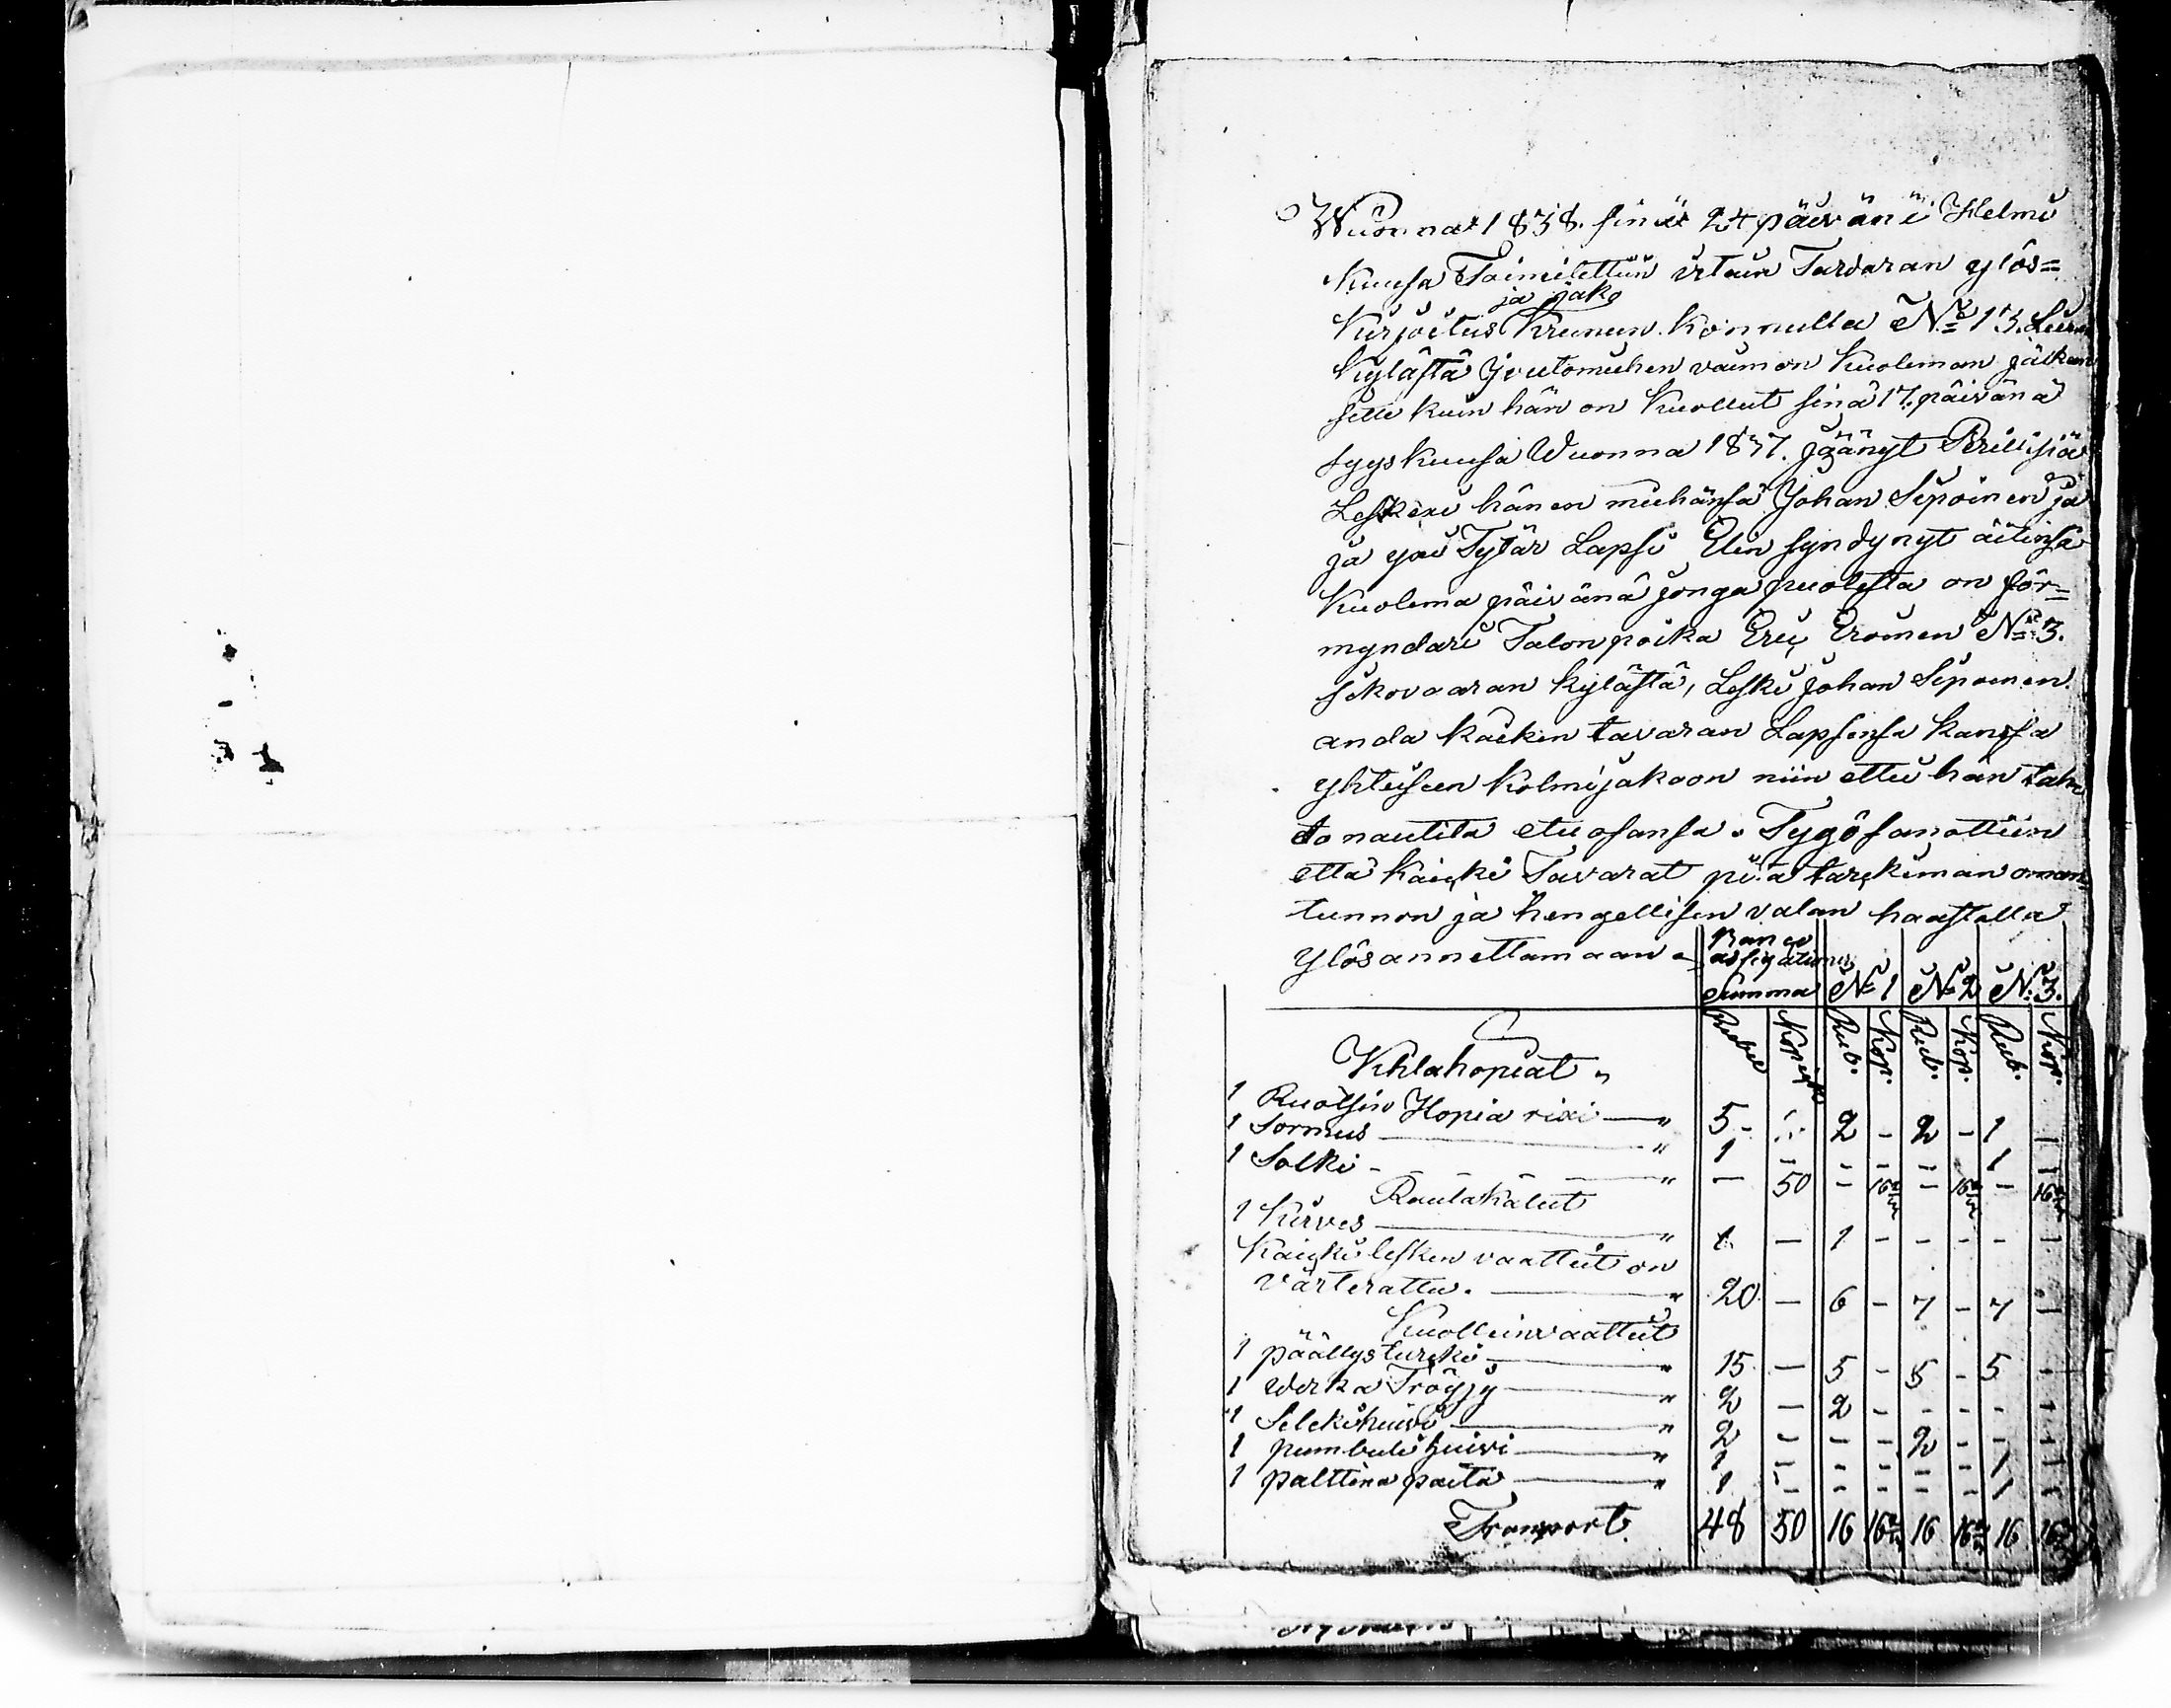 Wuonna 1838. sinä 24 päivänä Helmi
Kuusa Toimitettiin irtain Tavaran ylös=
ja jako
Kirjoitus Krunun Konnulla No 13.
Kylästä Joutomiehen vaimon Kuoleman jälken
sille kuin hän on Kuollut sinä 17. päivänä
syys kuusa Wuonna 1837. Jäänyt Perillisiä
Leskexi hänen miehänsä Johan Sipoinen ja
ja yxi Tytär Lapsi Elin syndynyt äitinsä
Kuolema päivänä jonga puolesta on för=
myndäri Talonpoika Eric Eroinen No 3.
sikovaaran kylästä, Leski Johan Sipoinen
anda kaiken tavaran Lapsensa kansa
yhteiseen kolmijakoon niin ettei hän tah
do nautita etu osansa. Tygösanottiin
että kaicki Tavarat pitä tarckiman oman
tunnon ja hengellisen valan haastolla
ylösannettamaan
Banco
assignationer
Summa No 1 No 2 No 3.
Rubel Kopeek Rub. Kop. Rub. Kop. Rub. Kop.
Kihlahopiat
1 Ruotsin Hopia rixi — " 5 - 2 - 2 - 1 —
1 Sormus — " 1 - - - - - 1 -
1 Solki - — " — 50 - 16 2/3 - 16 2/3 - 16 2/3
Rautakalut
1 Kirves — " 1 — 1 - - - - -
Kaicki lesken vaatteit on
värterattu. — " 20 — 6 - 7 - 7 -
Kuolleinvaatteit
1 päällysturcki — " 15 — 5 - 5 - 5 -
1 verka Tröyjy — " 2 — 2 - - - - -
1 Silckihuivi — " 2 - - - 2 - - -
1 pumbuli huivi — " 1 - - - - - 1 -
1 palttina paita — " 1 - - - - - 1 -
Transport. 48 50 16 16 2/3 16 16 2/3 16 16 2/3